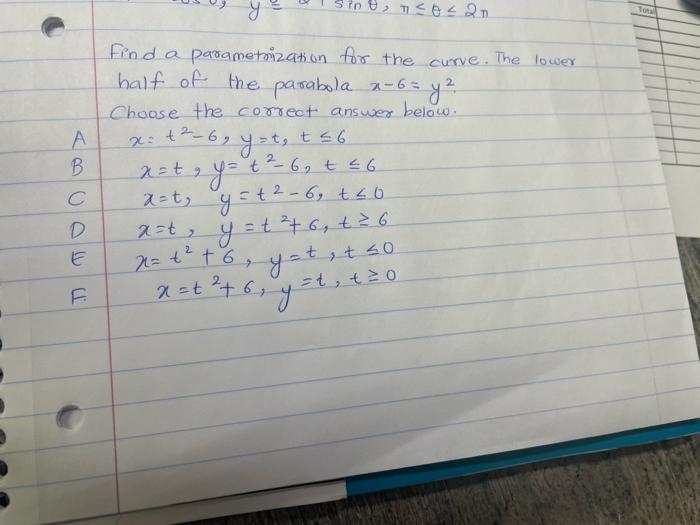 y = sin θ, π ≤ θ ≤ 2π
Total
Find a parametrization for the curve. The lower
half of the parabola x-6 = y².
Choose the correct answer below.
A x = t²-6, y = t, t ≤ 6
B x = t, y = t²-6, t ≤ 6
C x = t, y = t²-6, t ≤ 0
D x = t, y = t²+6, t ≥ 6
E x = t²+6, y = t, t ≤ 0
F. x = t²+6, y = t, t ≥ 0